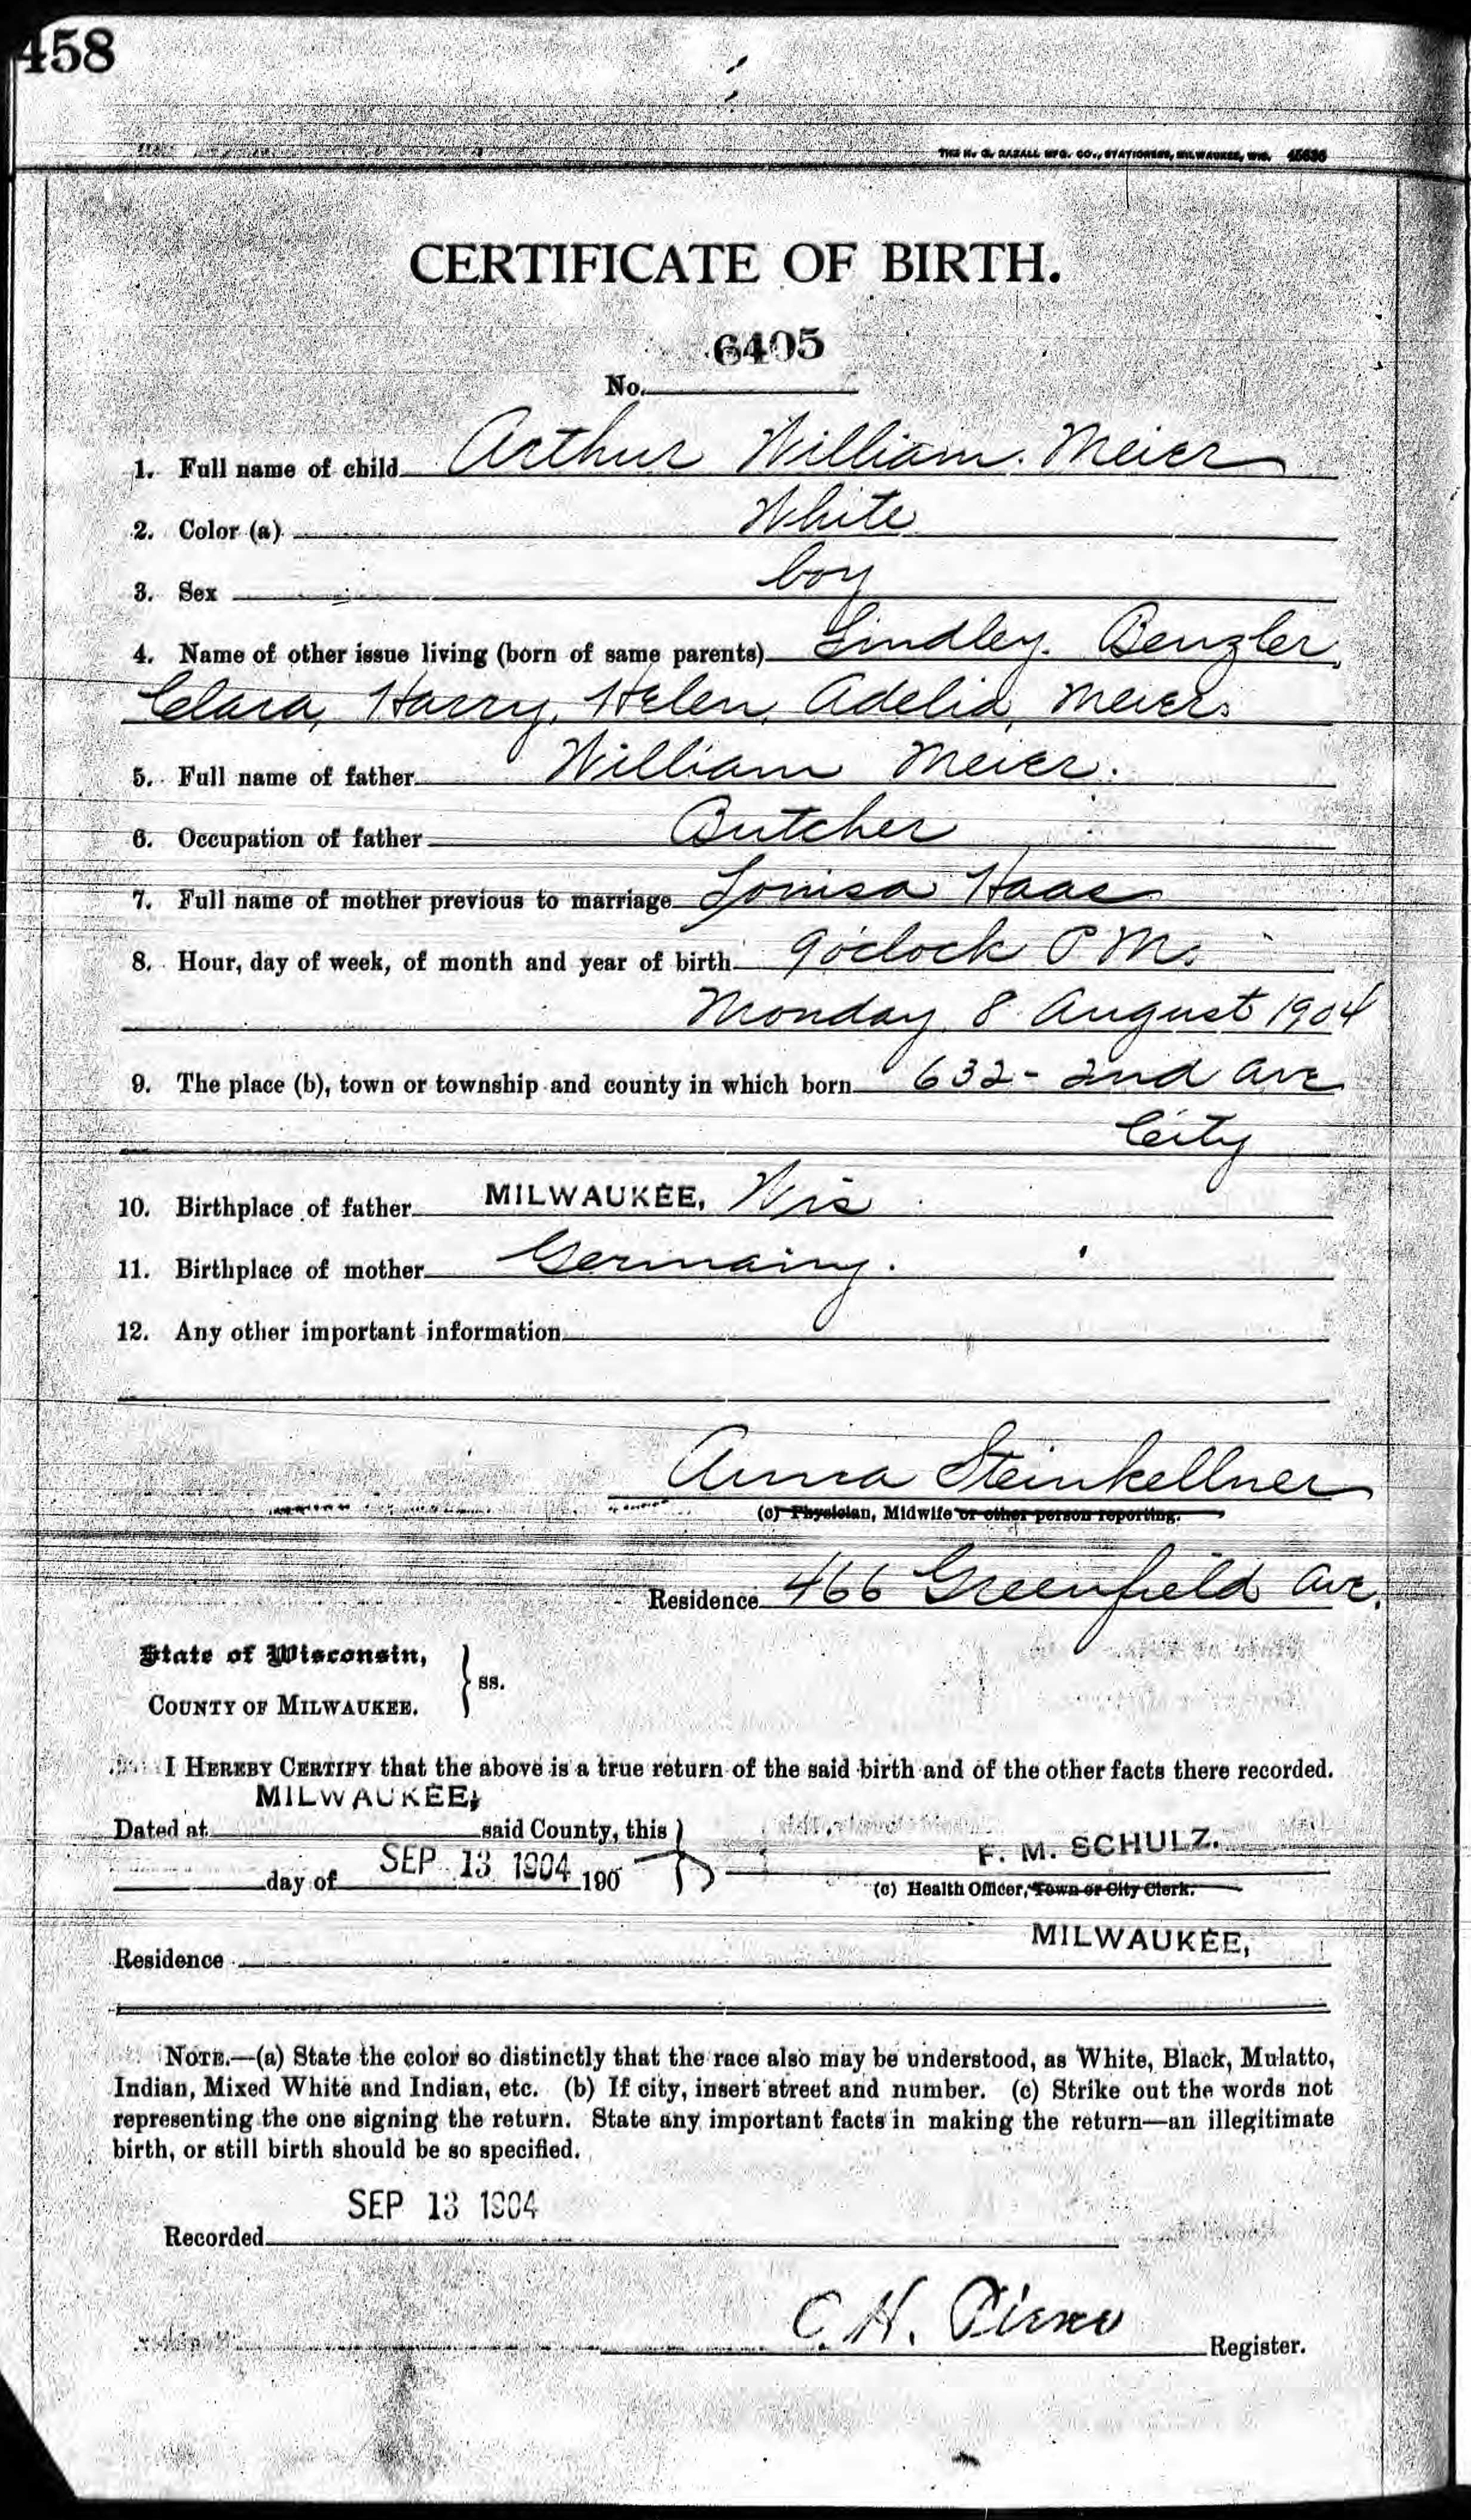 458
THE H. G. RAZALL MFG. CO., STATIONERS, MILWAUKEE, WIS.
CERTIFICATE OF BIRTH.
6405
No.
1. Full name of child Arthur William. Meier
2. Color (a) White
3. Sex boy
4. Name of other issue living (born of same parents) Lindley. Benzler,
Clara, Harry, Helen, Adelia, Meier.
5. Full name of father William Meier.
6. Occupation of father Butcher
7. Full name of mother previous to marriage Louisa Haas
8. Hour, day of week, of month and year of birth 9 o'clock P M.
Monday 8 August 1904
9. The place (b), town or township and county in which born 632- 2nd Ave
City
10. Birthplace of father MILWAUKEE, Wis
11. Birthplace of mother Germainy.
12. Any other important information
Anna Steinkellner
(c) Physician, Midwife or other person reporting.
Residence 466 Greenfield Ave.
State of Wisconsin,
COUNTY OF MILWAUKEE. } ss.
I HEREBY CERTIFY that the above is a true return of the said birth and of the other facts there recorded.
MILWAUKEE,
Dated at said County, this
F. M. SCHULZ.
day of SEP 13 1904 190
(c) Health Officer, Town or City Clerk.
MILWAUKEE,
Residence
NOTE.—(a) State the color so distinctly that the race also may be understood, as White, Black, Mulatto,
Indian, Mixed White and Indian, etc. (b) If city, insert street and number. (c) Strike out the words not
representing the one signing the return. State any important facts in making the return—an illegitimate
birth, or still birth should be so specified.
SEP 13 1904
Recorded
C. H.
Register.